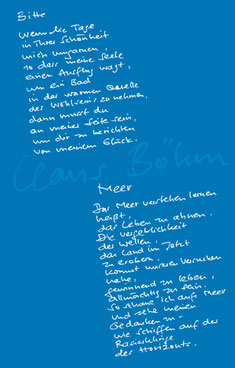 Bitte
Wenn die Tage
in ihrer Schönheit
mich umgarnen,
so dass meine Seele
einen Ausflug wagt,
um ein Bad
in der warmen Quelle
des Wohlseins zu nehmen,
dann musst du
an meiner Seite sein,
um dir zu berichten
von meinem Glück.
Claus Böhm
Meer
Das Meer verstehen lernen
heißt,
das Leben zu ahnen.
Die Vergeblichkeit
der Wellen,
das Land im Jetzt
zu erobern,
kommt unserem Versuchen
nahe,
gewinnend zu leben,
allmächtig zu sein.
So schaue ich aufs Meer
und sehe meinen
Gedanken zu -
wie Schiffen auf der
Rasierklinge
des Horizonts.